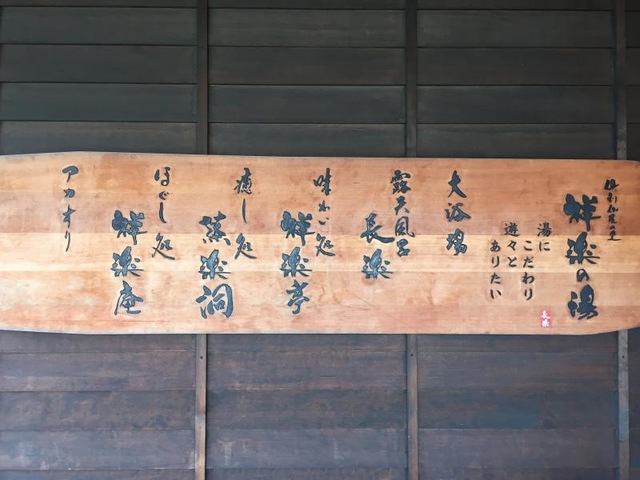 祥楽の湯
湯に
こだわり
遊々と
ありたい
大浴場
露天風呂
長楽
味わい処
祥楽亭
癒し処
蒸楽洞
ほぐし処
祥楽庵
アカオリ